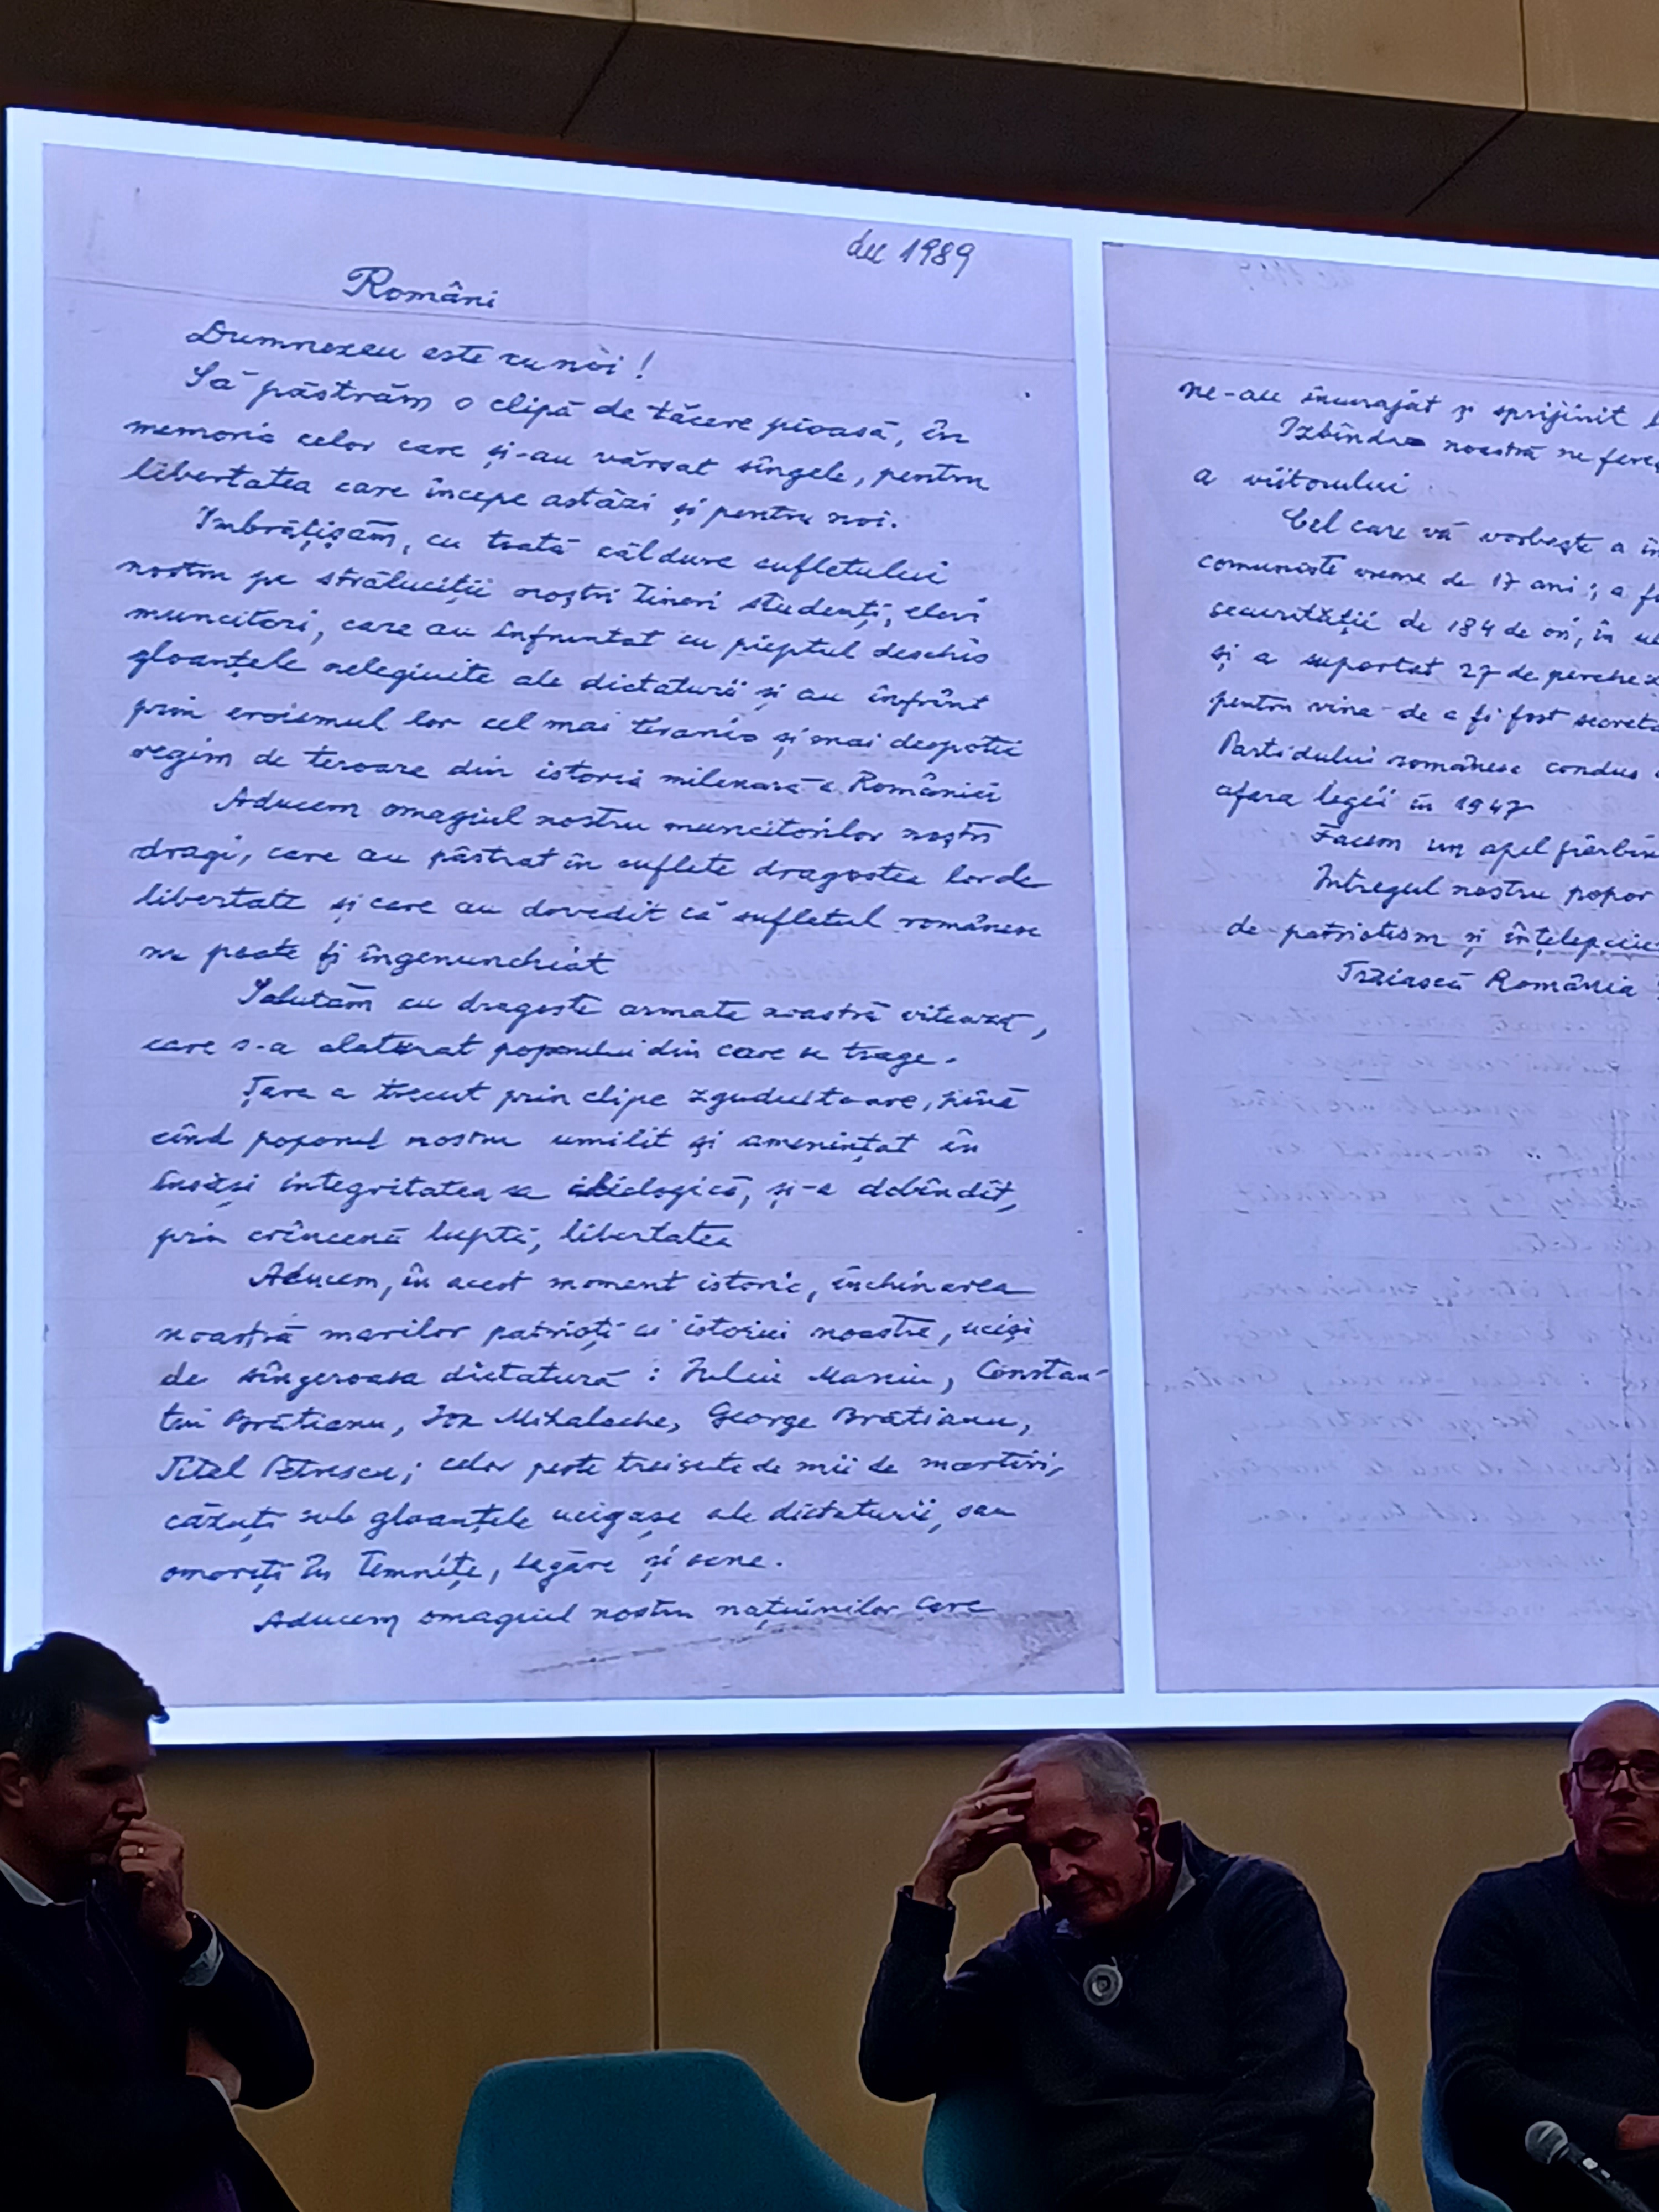 dec 1989
Români
Dumnezeu este cu noi!
Să păstrăm o clipă de tăcere pioasă, în
memoria celor care și-au vărsat sîngele, pentru
libertatea care începe astăzi și pentru noi.
Imbrățișăm, cu toată căldura sufletului
nostru pe străluciții noștri tineri studenți, elevi
muncitori, care au înfruntat cu pieptul deschis
gloanțele nelegiuite ale dictaturii și au înfrînt
prin eroismul lor cel mai tiranic și mai despotic
regim de teroare din istoria milenară a României
Aducem omagiul nostru muncitorilor noștri
dragi, care au păstrat în suflete dragostea lor de
libertate și care au dovedit că sufletul românesc
nu poate fi îngenunchiat
Salutăm cu dragoste armata noastră vitează,
care s-a alaturat poporului din care se trage.
Țara a trecut prin clipe zguduitoare, pînă
cînd poporul nostru umilit și amenințat în
însăși integritatea sa biologică, și-a dobîndit,
prin crîncenă luptă, libertatea
Aducem, în acest moment istoric, închinarea
noastră marilor patrioți ai istoriei noastre, uciși
de sîngeroasa dictatură: Iuliu Maniu, Constan-
tin Brătianu, Ion Mihalache, George Brătianu,
Titel Petrescu; celor peste treisute de mii de martiri,
căzuți sub gloanțele ucigașe ale dictaturii, sau
omorîți în temnițe, lagăre și
Aducem omagiul nostru națiunilor care
ne-au încurajat și sprijinit
Izbînda noastră ne
a viitorului
Cel care vă vorbește a
comuniste vreme de 17 ani; a
securității de 184 de ori, în
și a suportat 27 de
pentru vina de a fi fost
Partidului românesc condus
afara legii în 1947
Facem un apel
Intregul nostru popor
de patriotism și
Trăiască România